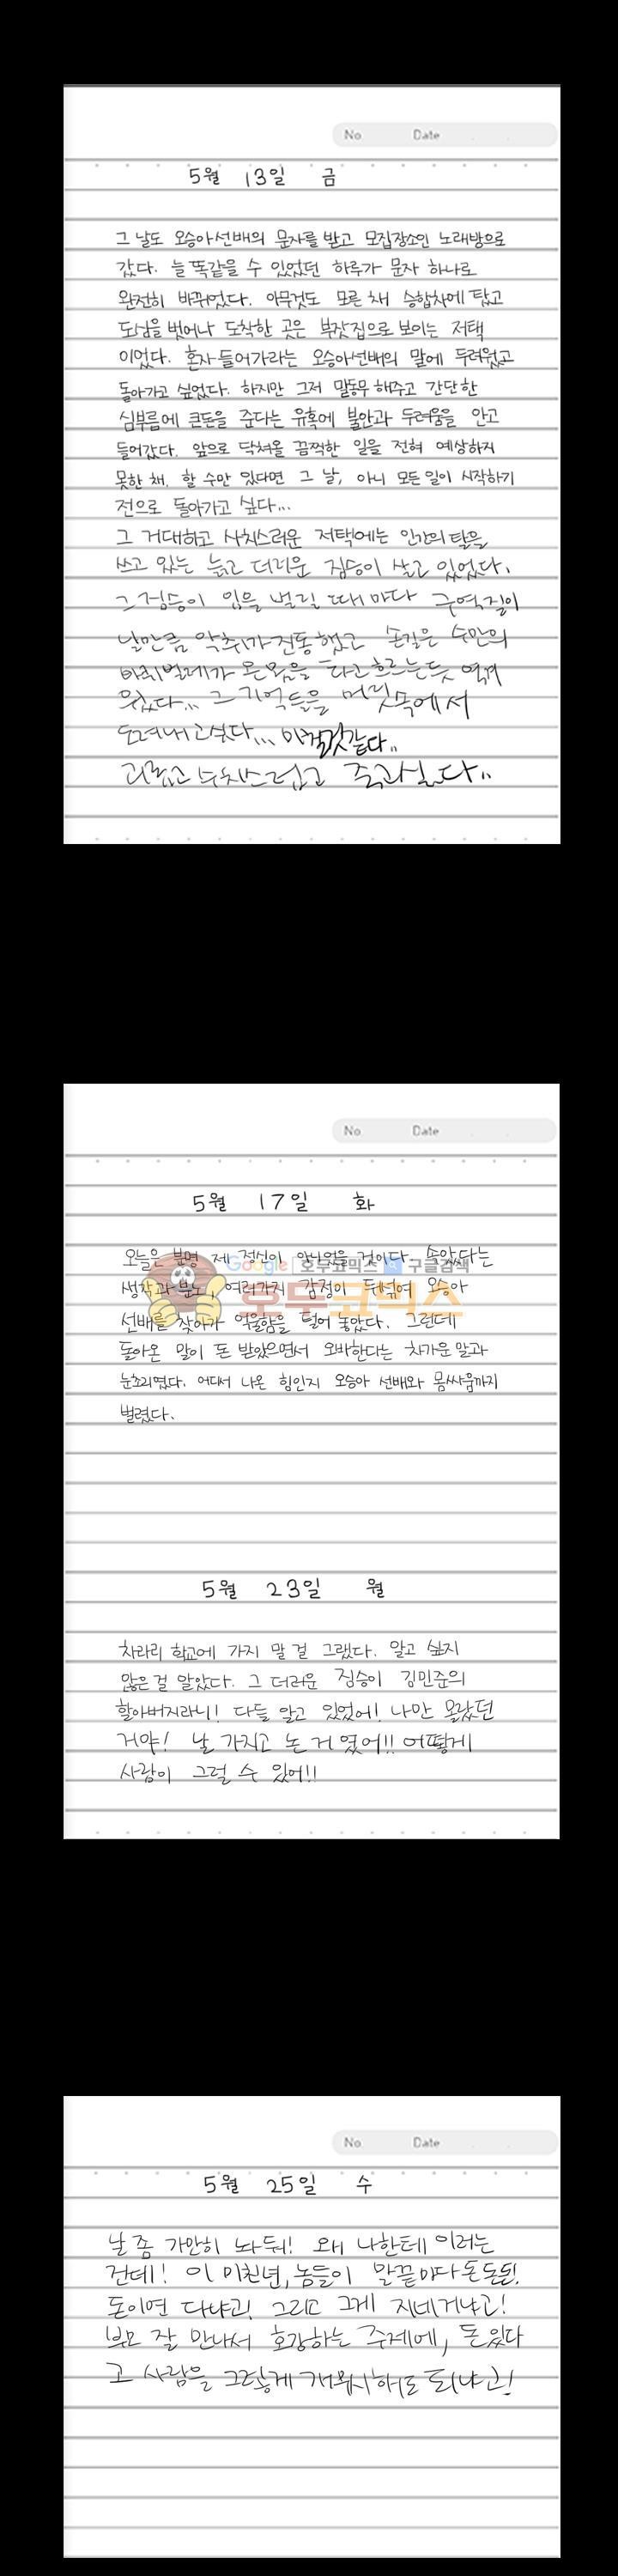 No Date
5월 13일 금
그 날도 오승아선배의 문자를 받고 모집장소인 노래방으로
갔다. 늘 똑같을 수 있었던 하루가 문자 하나로
완전히 바뀌었다. 아무것도 모른 채 승합차에 탔고
도심을 벗어나 도착한 곳은 부잣집으로 보이는 저택
이었다. 혼자 들어가라는 오승아선배의 말에 두려웠고
돌아가고 싶었다. 하지만 그저 말동무 해주고 간단한
심부름에 큰돈을 준다는 유혹에 불안과 두려움을 안고
들어갔다. 앞으로 닥쳐올 끔찍한 일을 전혀 예상하지
못한 채. 할 수만 있다면 그 날, 아니 모든 일이 시작하기
전으로 돌아가고 싶다...
그 거대하고 사치스러운 저택에는 인간의 탈을
쓰고 있는 늙고 더러운 짐승이 살고 있었다.
그 짐승이 입을 벌릴 때 마다 구역질이
날만큼 악취가 진동했고 손길은 수만의
바퀴벌레가 온몸을 타고 흐르는듯 역겨
웠다... 그 기억들을 머릿속에서
도려내고싶다... 미칠것같다..
괴롭고 수치스럽고 죽고싶다..
No Date
5월 17일 화
오늘은 분명 제 정신이 아니었을 것이다. 속았다는
Google 호두코믹스 구글검색
생각과 분노, 여러가지 감정이 뒤섞여 오승아
호두코믹스
선배를 찾아가 억울함을 털어 놓았다. 그런데
돌아온 말이 돈 받았으면서 오바한다는 차가운 말과
눈초리였다. 어디서 나온 힘인지 오승아 선배와 몸싸움까지
벌렸다.
5월 23일 월
차라리 학교에 가지 말 걸 그랬다. 알고 싶지
않은 걸 알았다. 그 더러운 짐승이 김민준의
할아버지라니! 다들 알고 있었어! 나만 몰랐던
거야! 날 가지고 논 거 였어!! 어떻게
사람이 그럴 수 있어!!
No Date
5월 25일 수
날 좀 가만히 놔둬! 왜 나한테 이러는
건데! 이 미친년, 놈들이 말끝마다 돈돈돈!
돈이면 다냐고! 그리고 그게 지네거냐고!
부모 잘 만나서 호강하는 주제에, 돈 있다
고 사람을 그렇게 개무시해도 되냐고!